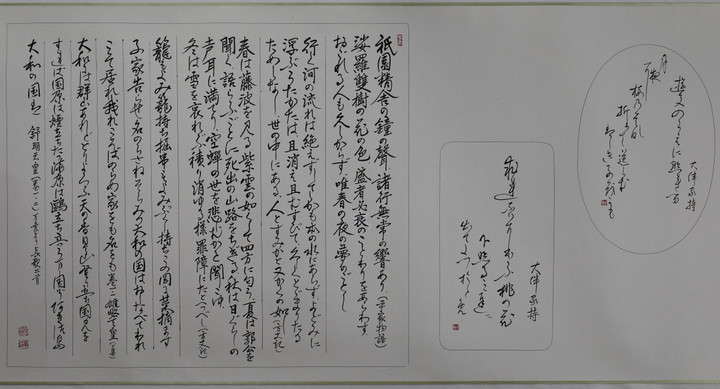 大伴家持
月夜に
梅の花
折りて送らむ
大伴家持
桃の花
祇園精舎の鐘の聲 諸行無常の響あり（平家物語）
娑羅雙樹の花の色 盛者必衰のことわりをあらわす
おごれる人も久しからず 唯春の夜の夢のごとし
行く河の流れは絶えずしてしかも本の水にあらずよどみに
浮ぶうたかたは且消え且むすびて久しくとどまりたる
ためしなし 世の中にある人とすみかと又かくの如し（方丈記）
春は藤波を見る 紫雲の如くして西方に匂う 夏は郭公を
聞く 語らふごとに死出の山路をちぎる 秋は日ぐらしの
声耳に満てり 空蝉の世を悲しむかと聞こゆ
冬は雪を哀れぶ 積り消ゆる様罪障にたとへつべし（方丈記）
籠もよみ籠持ち掘串もよみぶくし持ちこの岡に菜摘ます
子 家告らせ名のらさねそらみつ大和の国はおしなべてわれ
こそ居れ 我れこそはのらめ家をも名をも 巻一 雄略天皇
大和には群山あれどとりよろふ天の香具山登り立ち国見を
すれば国原は煙立ち立つ海原は鴎立ち立つ
大和の国は 舒明天皇（巻一・二）万葉集より長歌二首